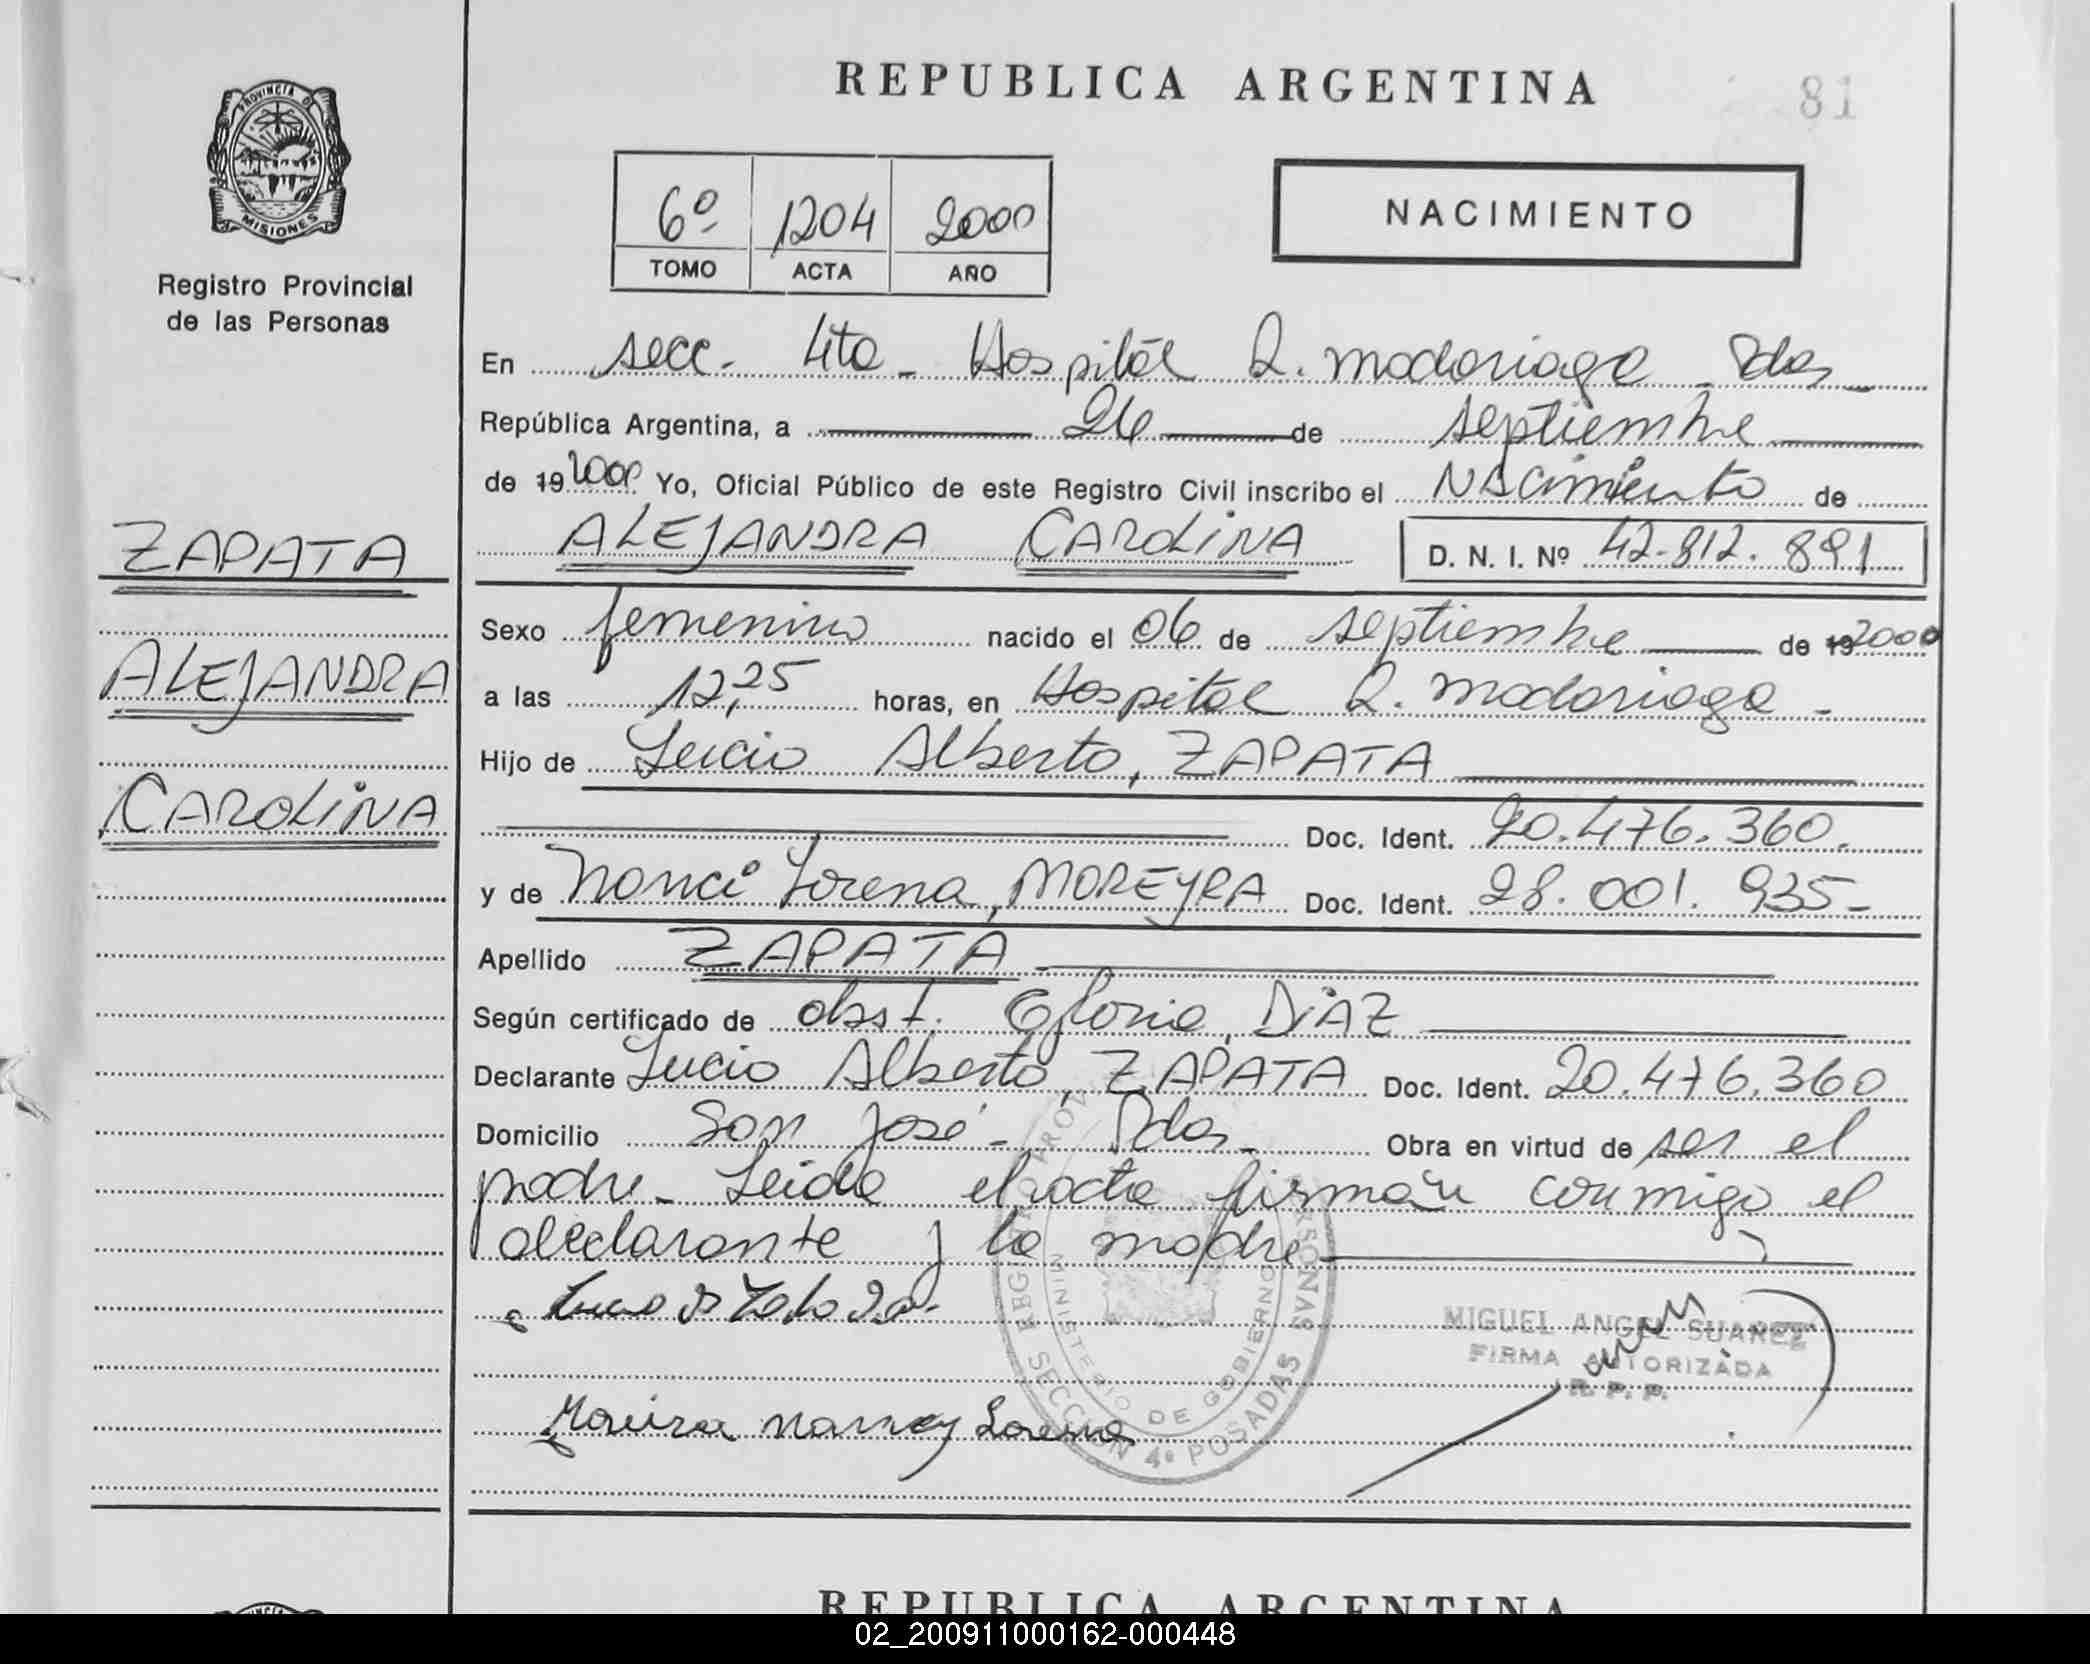 REPUBLICA ARGENTINA
81
PROVINCIA DE
MISIONES
Registro Provincial
de las Personas
6º 1204 2000
TOMO ACTA AÑO
NACIMIENTO
En secc. 4ta - Hospital R. Madariaga - Pdas -
República Argentina, a 26 de septiembre
de 19 2000 Yo, Oficial Público de este Registro Civil inscribo el NACimiento de
ALEJANDRA CAROLINA D. N. I. Nº 42.812.891
ZAPATA
ALEJANDRA
CAROLINA
Sexo femenino nacido el 06 de septiembre de 19 2000
a las 12,25 horas, en Hospital R. Madariaga -
Hijo de Lucio Alberto, ZAPATA
Doc. Ident. 20.476.360.
y de Nanci Lorena, MOREYRA Doc. Ident. 28.001.935-
Apellido ZAPATA
Según certificado de obst. Gloria, DIAZ
Declarante Lucio Alberto, ZAPATA Doc. Ident. 20.476.360
Domicilio San José - Pdas - Obra en virtud de ser el
padre - Leida el acta firman conmigo el
declarante y la madre
MIGUEL ANGEL SUAREZ
FIRMA AUTORIZADA
R. P. P.
Moreira Nancy Lorena
MINISTERIO DE GOBIERNO
SECCION 4º POSADAS
REPUBLICA ARGENTINA
02_200911000162-000448